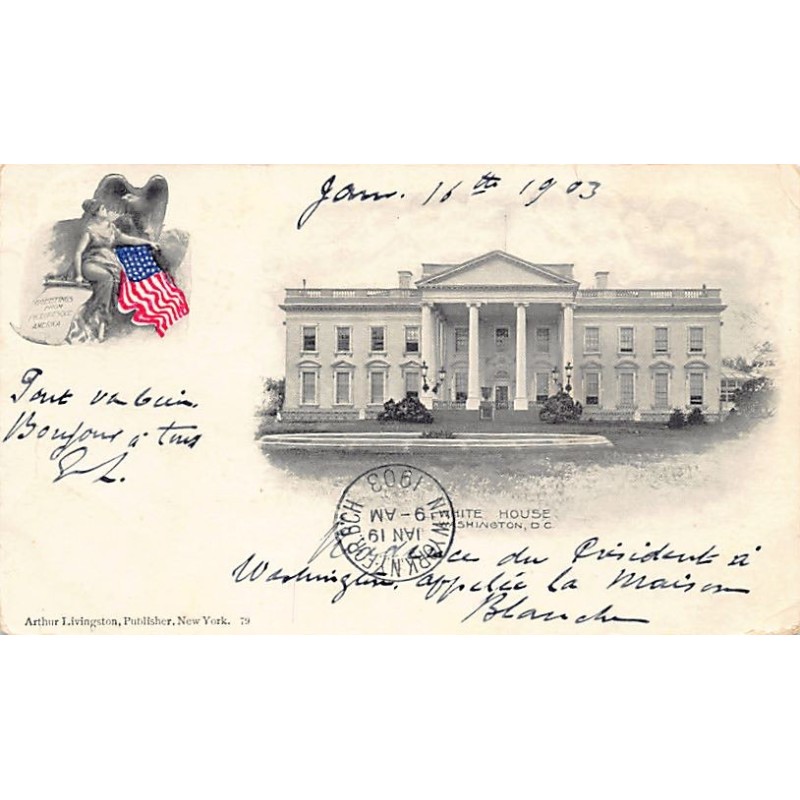 Jan. 16th 1903
GREETINGS
FROM
PICTURESQUE
AMERICA
Tout va bien.
Bonjour à tous
WHITE HOUSE
WASHINGTON, D.C.
NEW YORK, N.Y. FOR. BCH
JAN 19
9-AM
1903
Résidence du Président à
Washington, appelée la Maison
Blanche
Arthur Livingston, Publisher, New York. 79